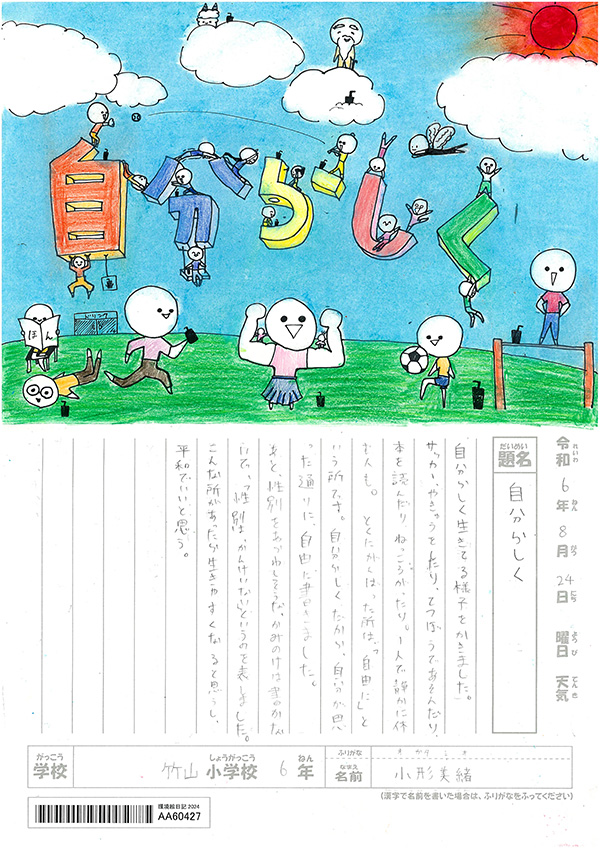 自分らしく
ドリンク
ほん
令和6年8月24日 曜日 天気
れいわ ねん がつ にち ようび てんき
だいめい
題名
自分らしく
自分らしく生きてる様子をかきました。
サッカー、やきゅうをしたり、てつぼうであそんだり、
本を読んだりねっころがったり。1人で静かに休
む人も。とくにがんばった所は、「自由に」と
いう所です。自分らしくだから、自分が思
った通りに、自由に書きました。
あと、性別をあらわしそうな、かみのけは書かな
いで、「性別は、かんけいない」というのを表しました。
こんな所があったら生きやすくなると思うし、
平和でいいと思う。
がっこう
学校
竹山 小学校 6年
しょうがっこう ねん
ふりがな
オ ガタ ミ オ
なまえ
名前
小形美緒
(漢字で名前を書いた場合は、ふりがなをふってください)
環境絵日記 2024
AA60427